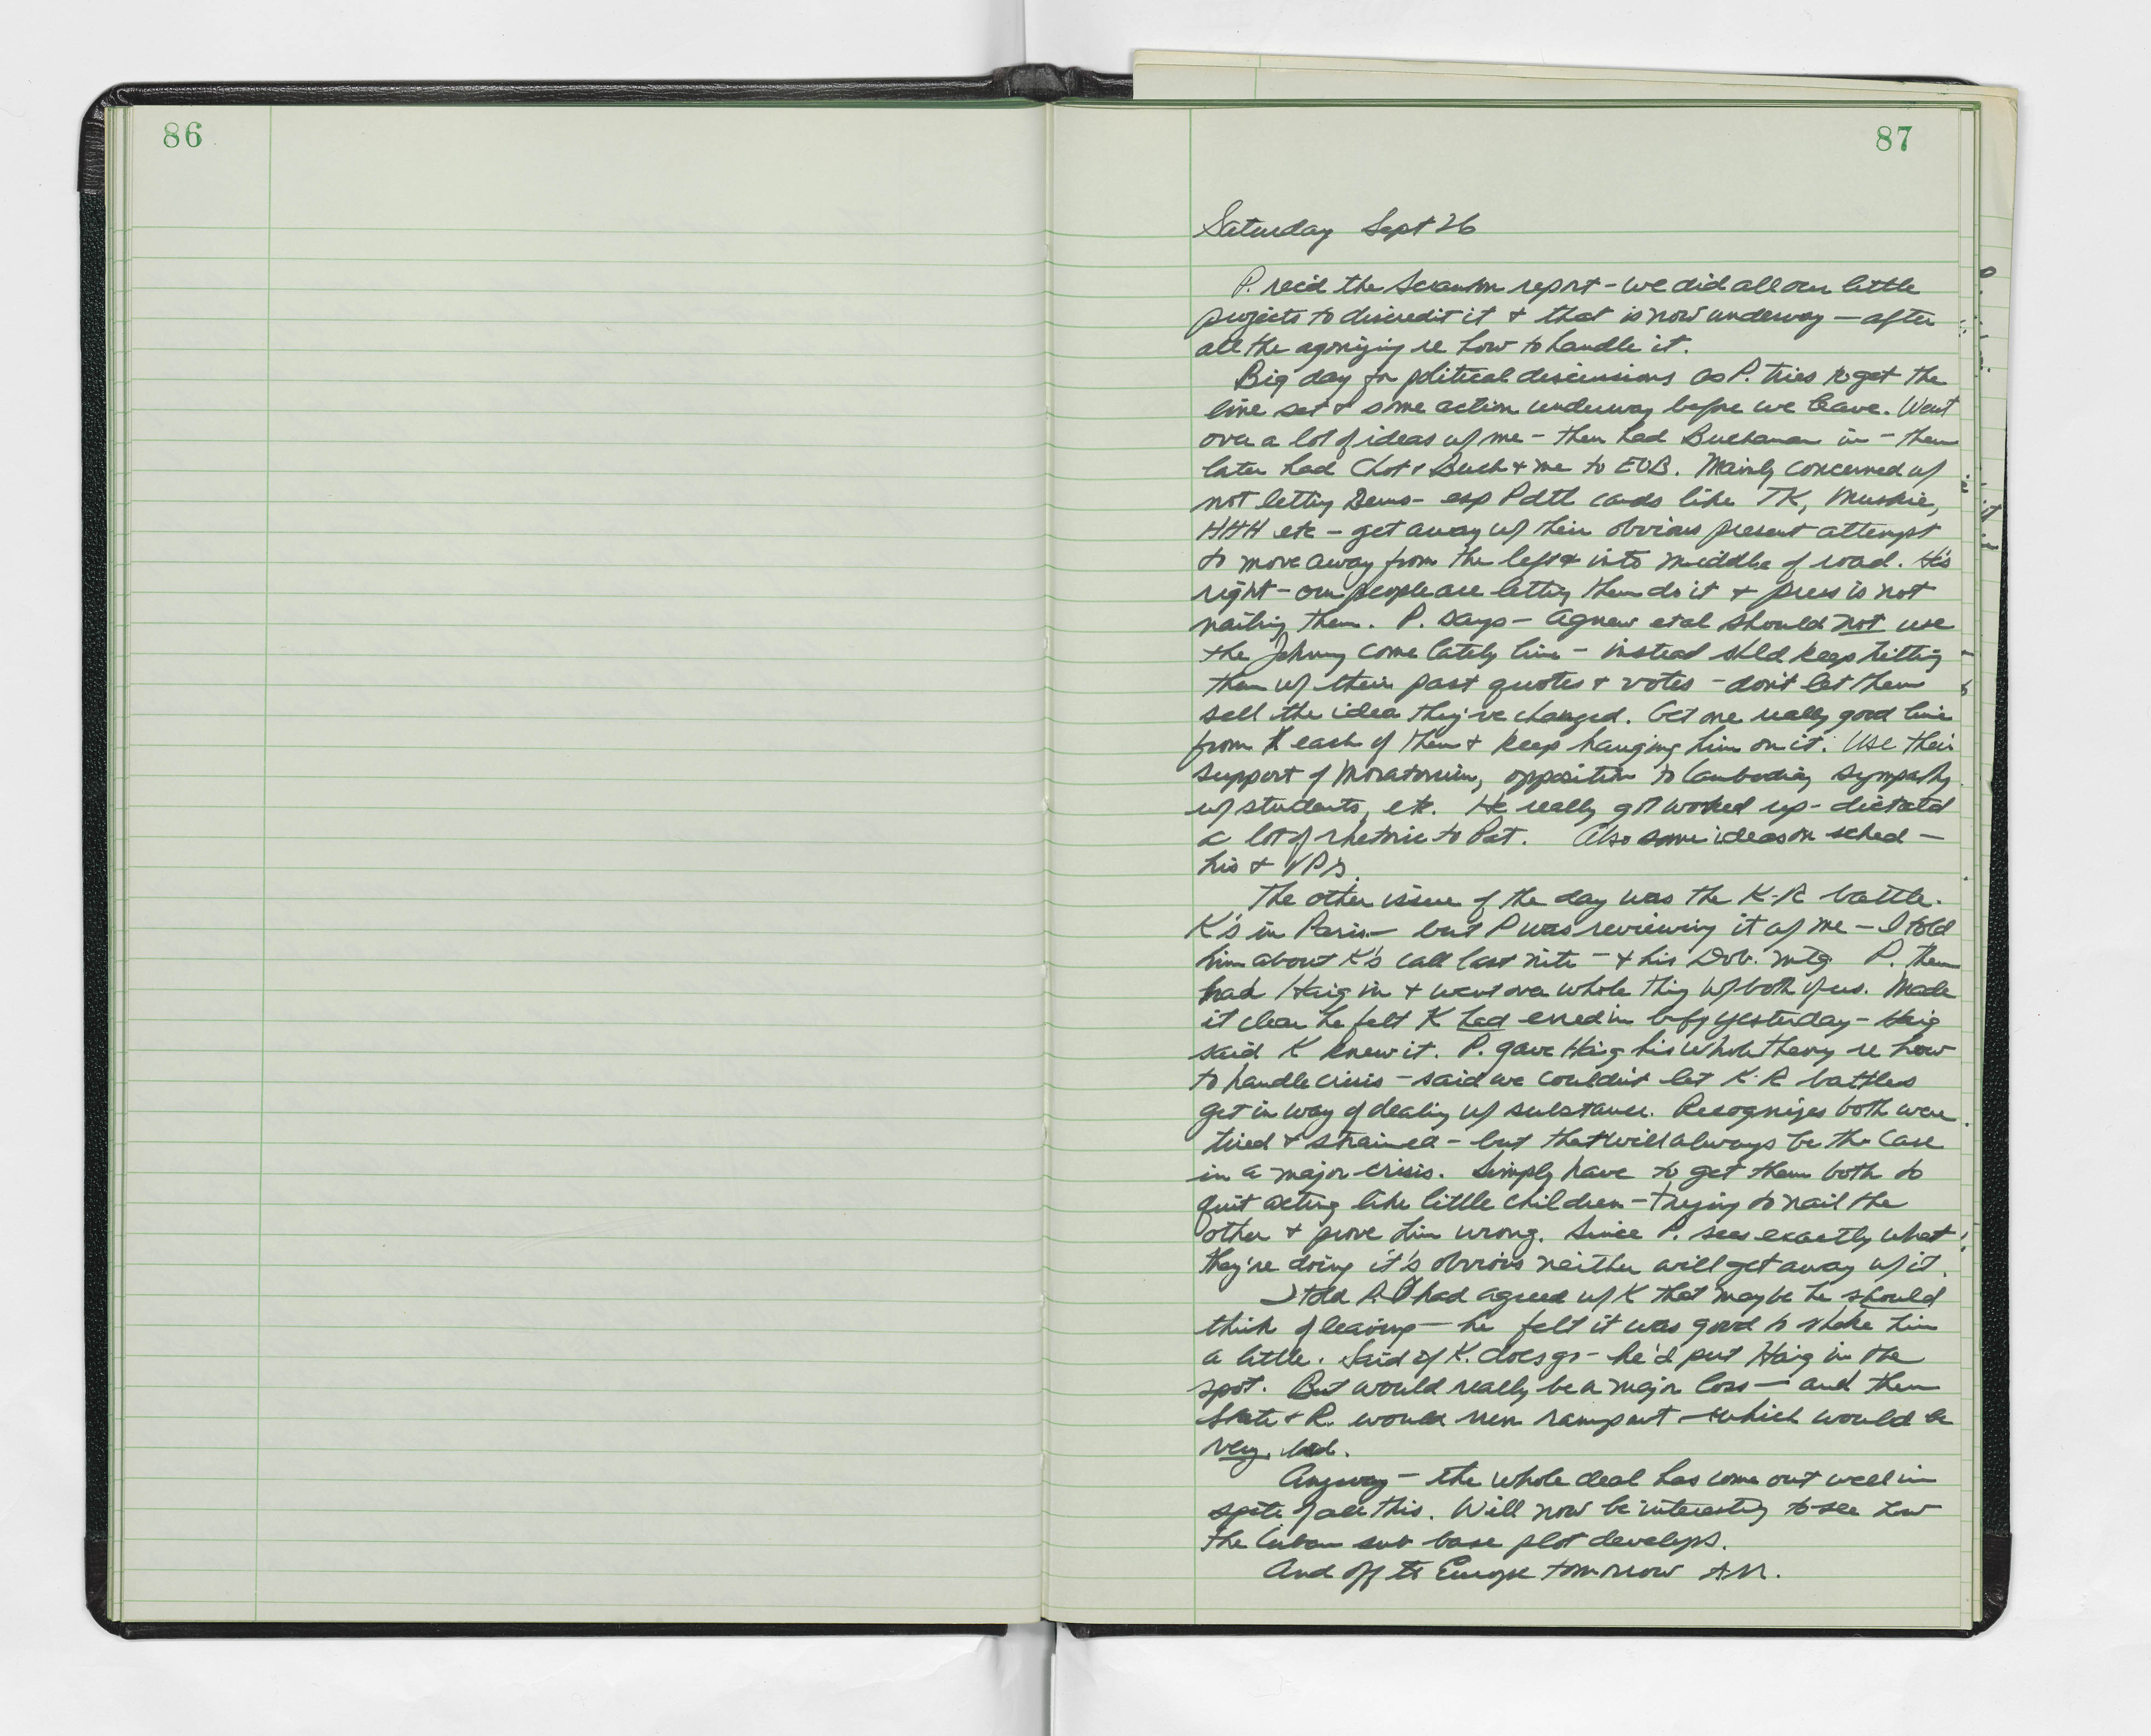 86
87
Saturday Sept 26
P. rec'd the Scranton report - we did all our little
projects to discredit it + that is now underway - after
all the agonizing re how to handle it.
Big day for political discussions as P. tries to get the
line set + some action underway before we leave. Went
over a lot of ideas w/ me - then had Buchanan in - then
later had Chot & Buch + me to EOB. Mainly concerned w/
not letting Dems - esp Pdtl cands like TK, Muskie,
HHH etc - get away w/ their obvious present attempt
to move away from the left & into middle of road. He's
right - our people are letting them do it + press is not
nailing them. P. says - Agnew et al should not use
the Johnny come lately line - instead shld keep hitting
them w/ their past quotes + votes - don't let them
sell the idea they've changed. Get one really good line
from each of them + keep hanging him on it. Use their
support of Moratorium, opposition to Cambodia, sympathy
w/ students, etc. He really got worked up - dictated
a lot of rhetoric to Pat. Also some ideas on sched -
his + VP's.
The other issue of the day was the K-R battle.
K's in Paris - but P was reviewing it w/ me - I told
him about K's call last nite - + his Dob. mtg P. then
had Haig in + went over whole thing w/ both of us. Made
it clear he felt K had erred in bfg yesterday - Haig
said K knew it. P. gave Haig his whole theory re how
to handle crisis - said we couldn't let K-R battles
get in way of dealing w/ substance. Recognizes both were
tired + strained - but that will always be the case
in a major crisis. Simply have to get them both to
quit acting like little children - trying to nail the
other + prove him wrong. Since P. sees exactly what
they're doing it's obvious neither will get away w/ it.
I told P. I had agreed w/ K that maybe he should
think of leaving - he felt it was good to shake him
a little. Said if K. does go - he'd put Haig in the
spot. But would really be a major loss - and then
State + R. would run rampant - which would be
very bad.
Anyway - the whole deal has come out well in
spite of all this. Will now be interesting to see how
the Cuban sub base plot develops.
And off to Europe tomorrow AM.